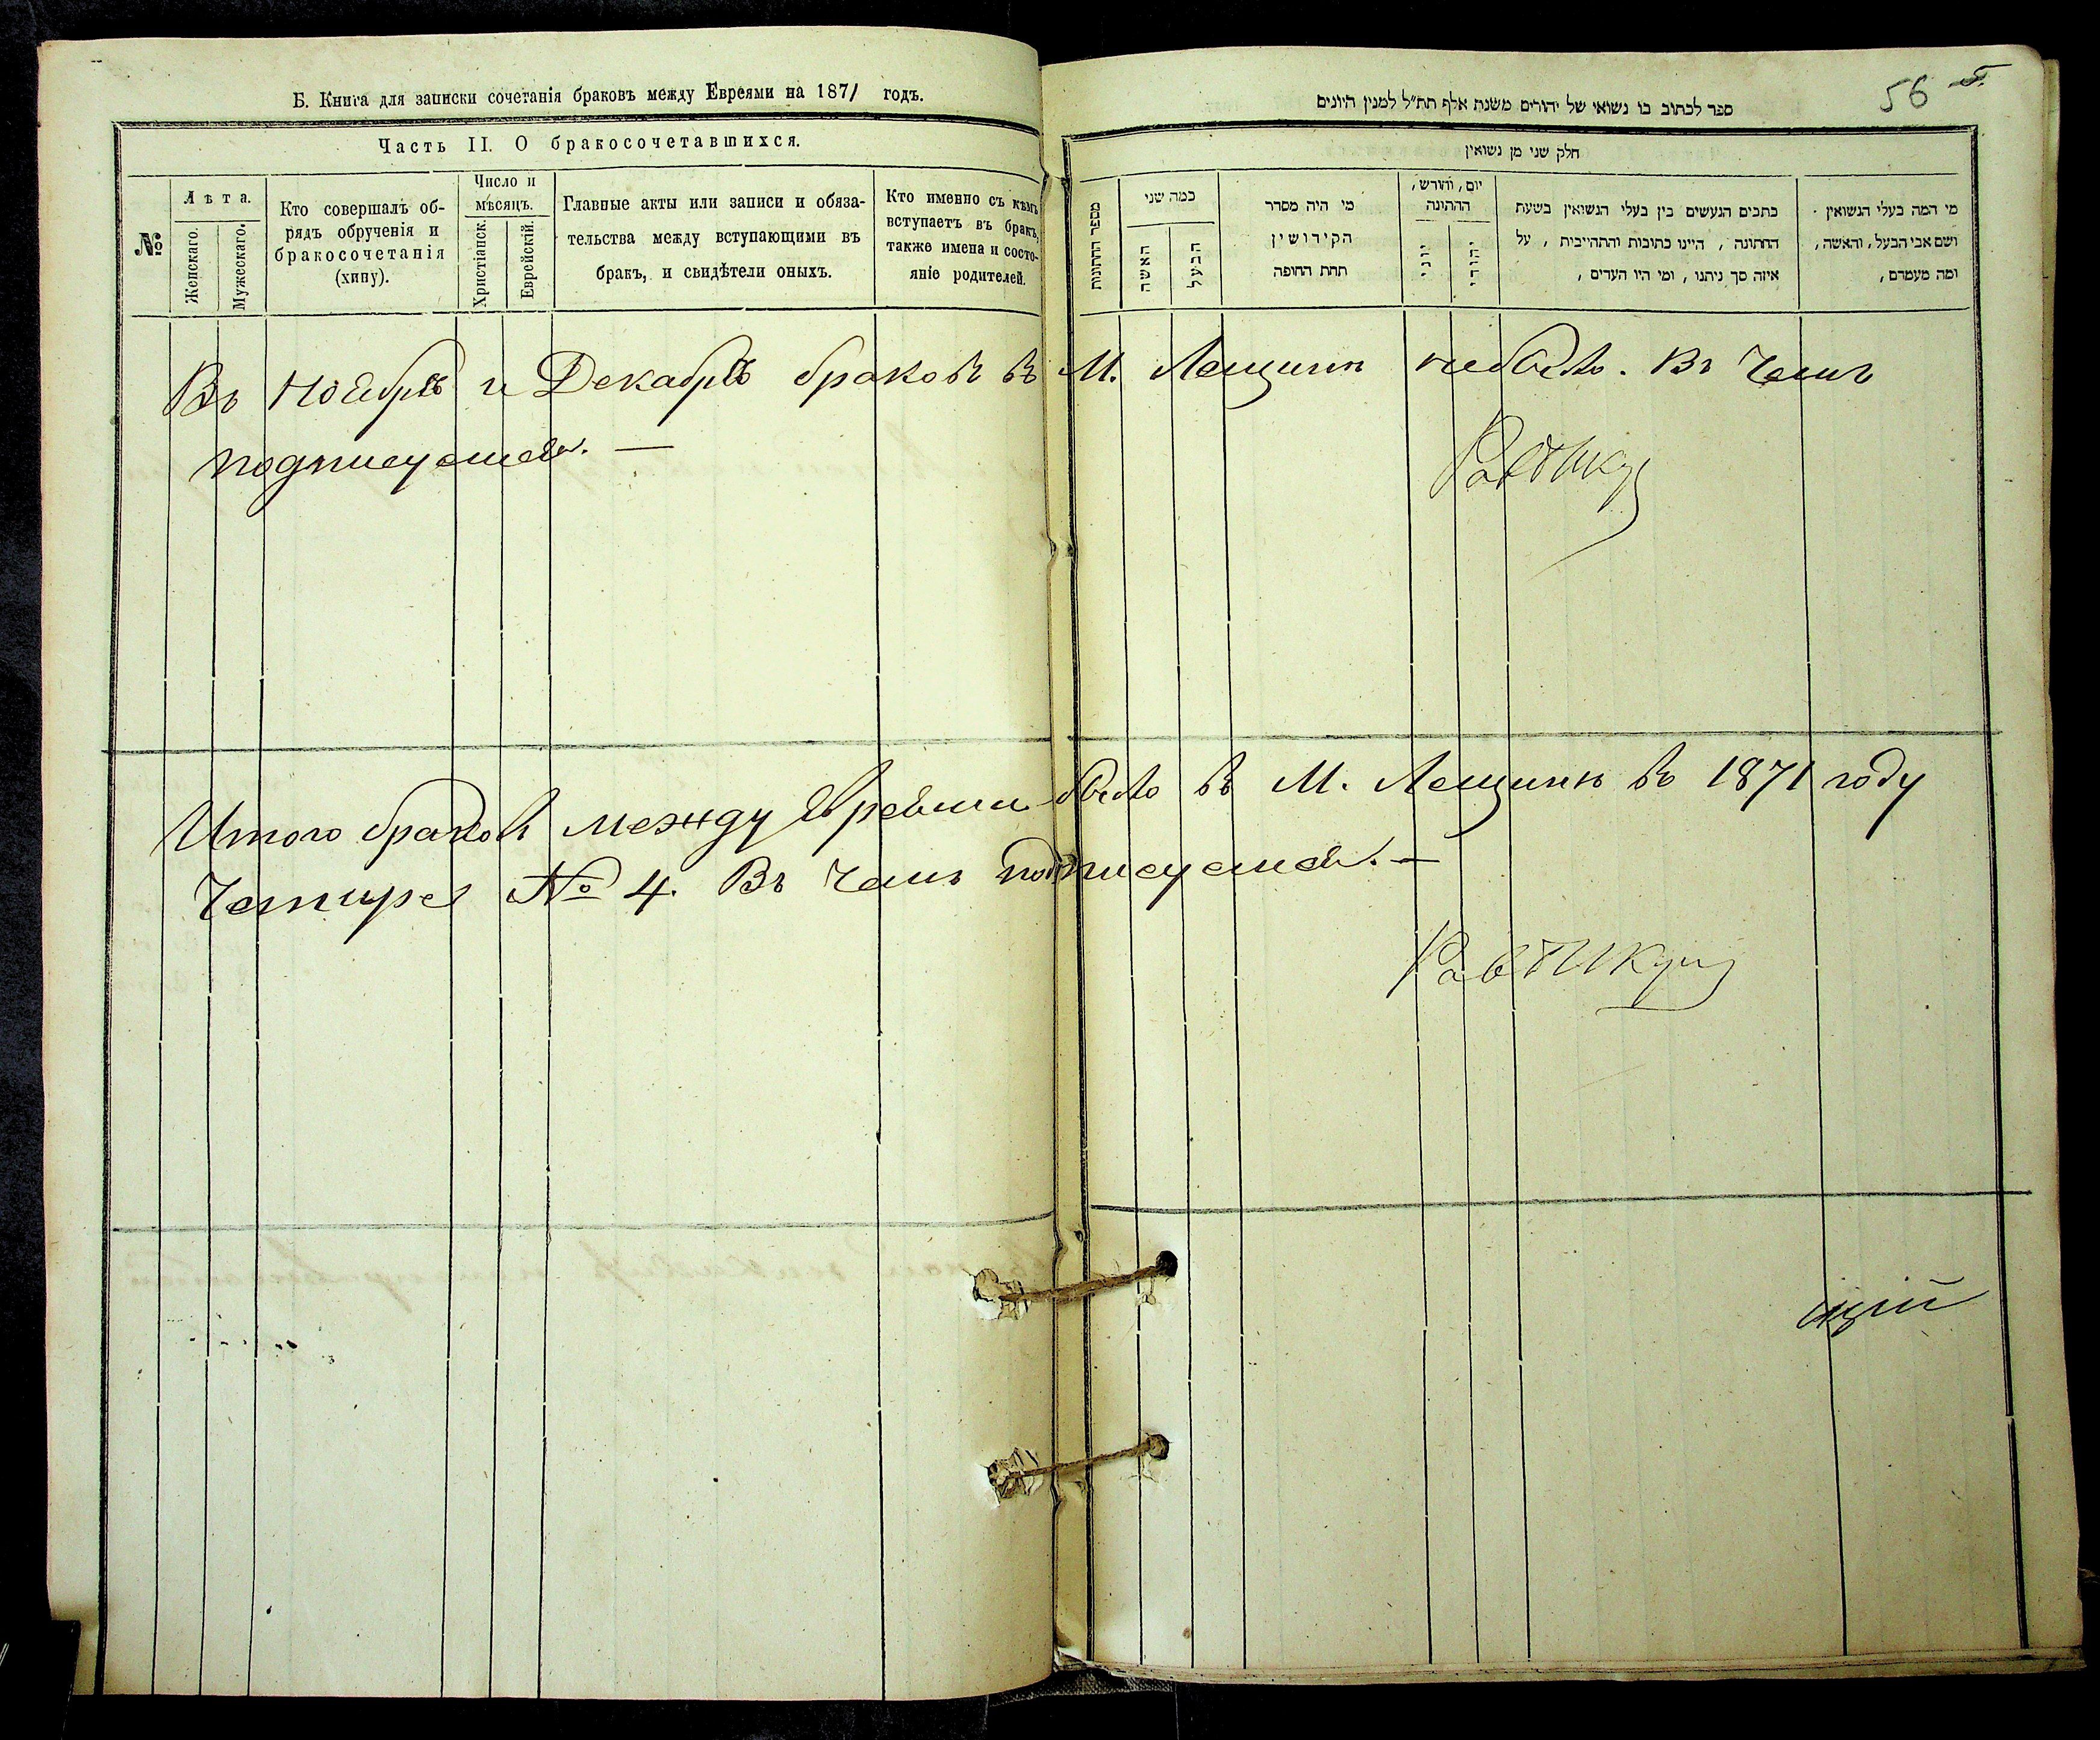 Б. Книга для записки сочетанія браковъ между Евреями на 1871 годъ.
Часть II. О бракосочетавшихся.
№
Лѣта.
Женскаго.
Мужескаго.
Кто совершалъ об-
рядъ обрученія и
бракосочетанія
(хипу).
Число и
мѣсяцъ.
Христіанск.
Еврейскій.
Главные акты или записи и обяза-
тельства между вступающими въ
бракъ, и свидѣтели оныхъ.
Кто именно съ кѣмъ
вступаетъ въ бракъ,
также имена и состо-
яніе родителей.
56
ספר לכתוב בו נשואי של יהודים משנת אלף תת״ל למנין היונים
חלק שני מן נשואין
מספר החתונות
כמה שני
האשה
הבעל
מי היה מסדר
הקידושין
תחת החופה
יום, וחודש,
החתונה
יוני
יהודי
כתבים הנעשים בין בעלי הנשואין בשעת
החתונה, היינו כתובות והתחייבות, על
איזה סך ניתנו, ומי היו העדים,
מי המה בעלי הנשואין
ושם אבי הבעל, והאשה,
ומה מעמדם,
Въ Ноябрѣ и Декабрѣ браковъ въ М. Лещинѣ небыло. Въ чемъ
подписуемся. —
Итого браков между Евреями было въ М. Лещинѣ въ 1871 году
Четыре № 4. Въ чемъ подписуемся. —
щій